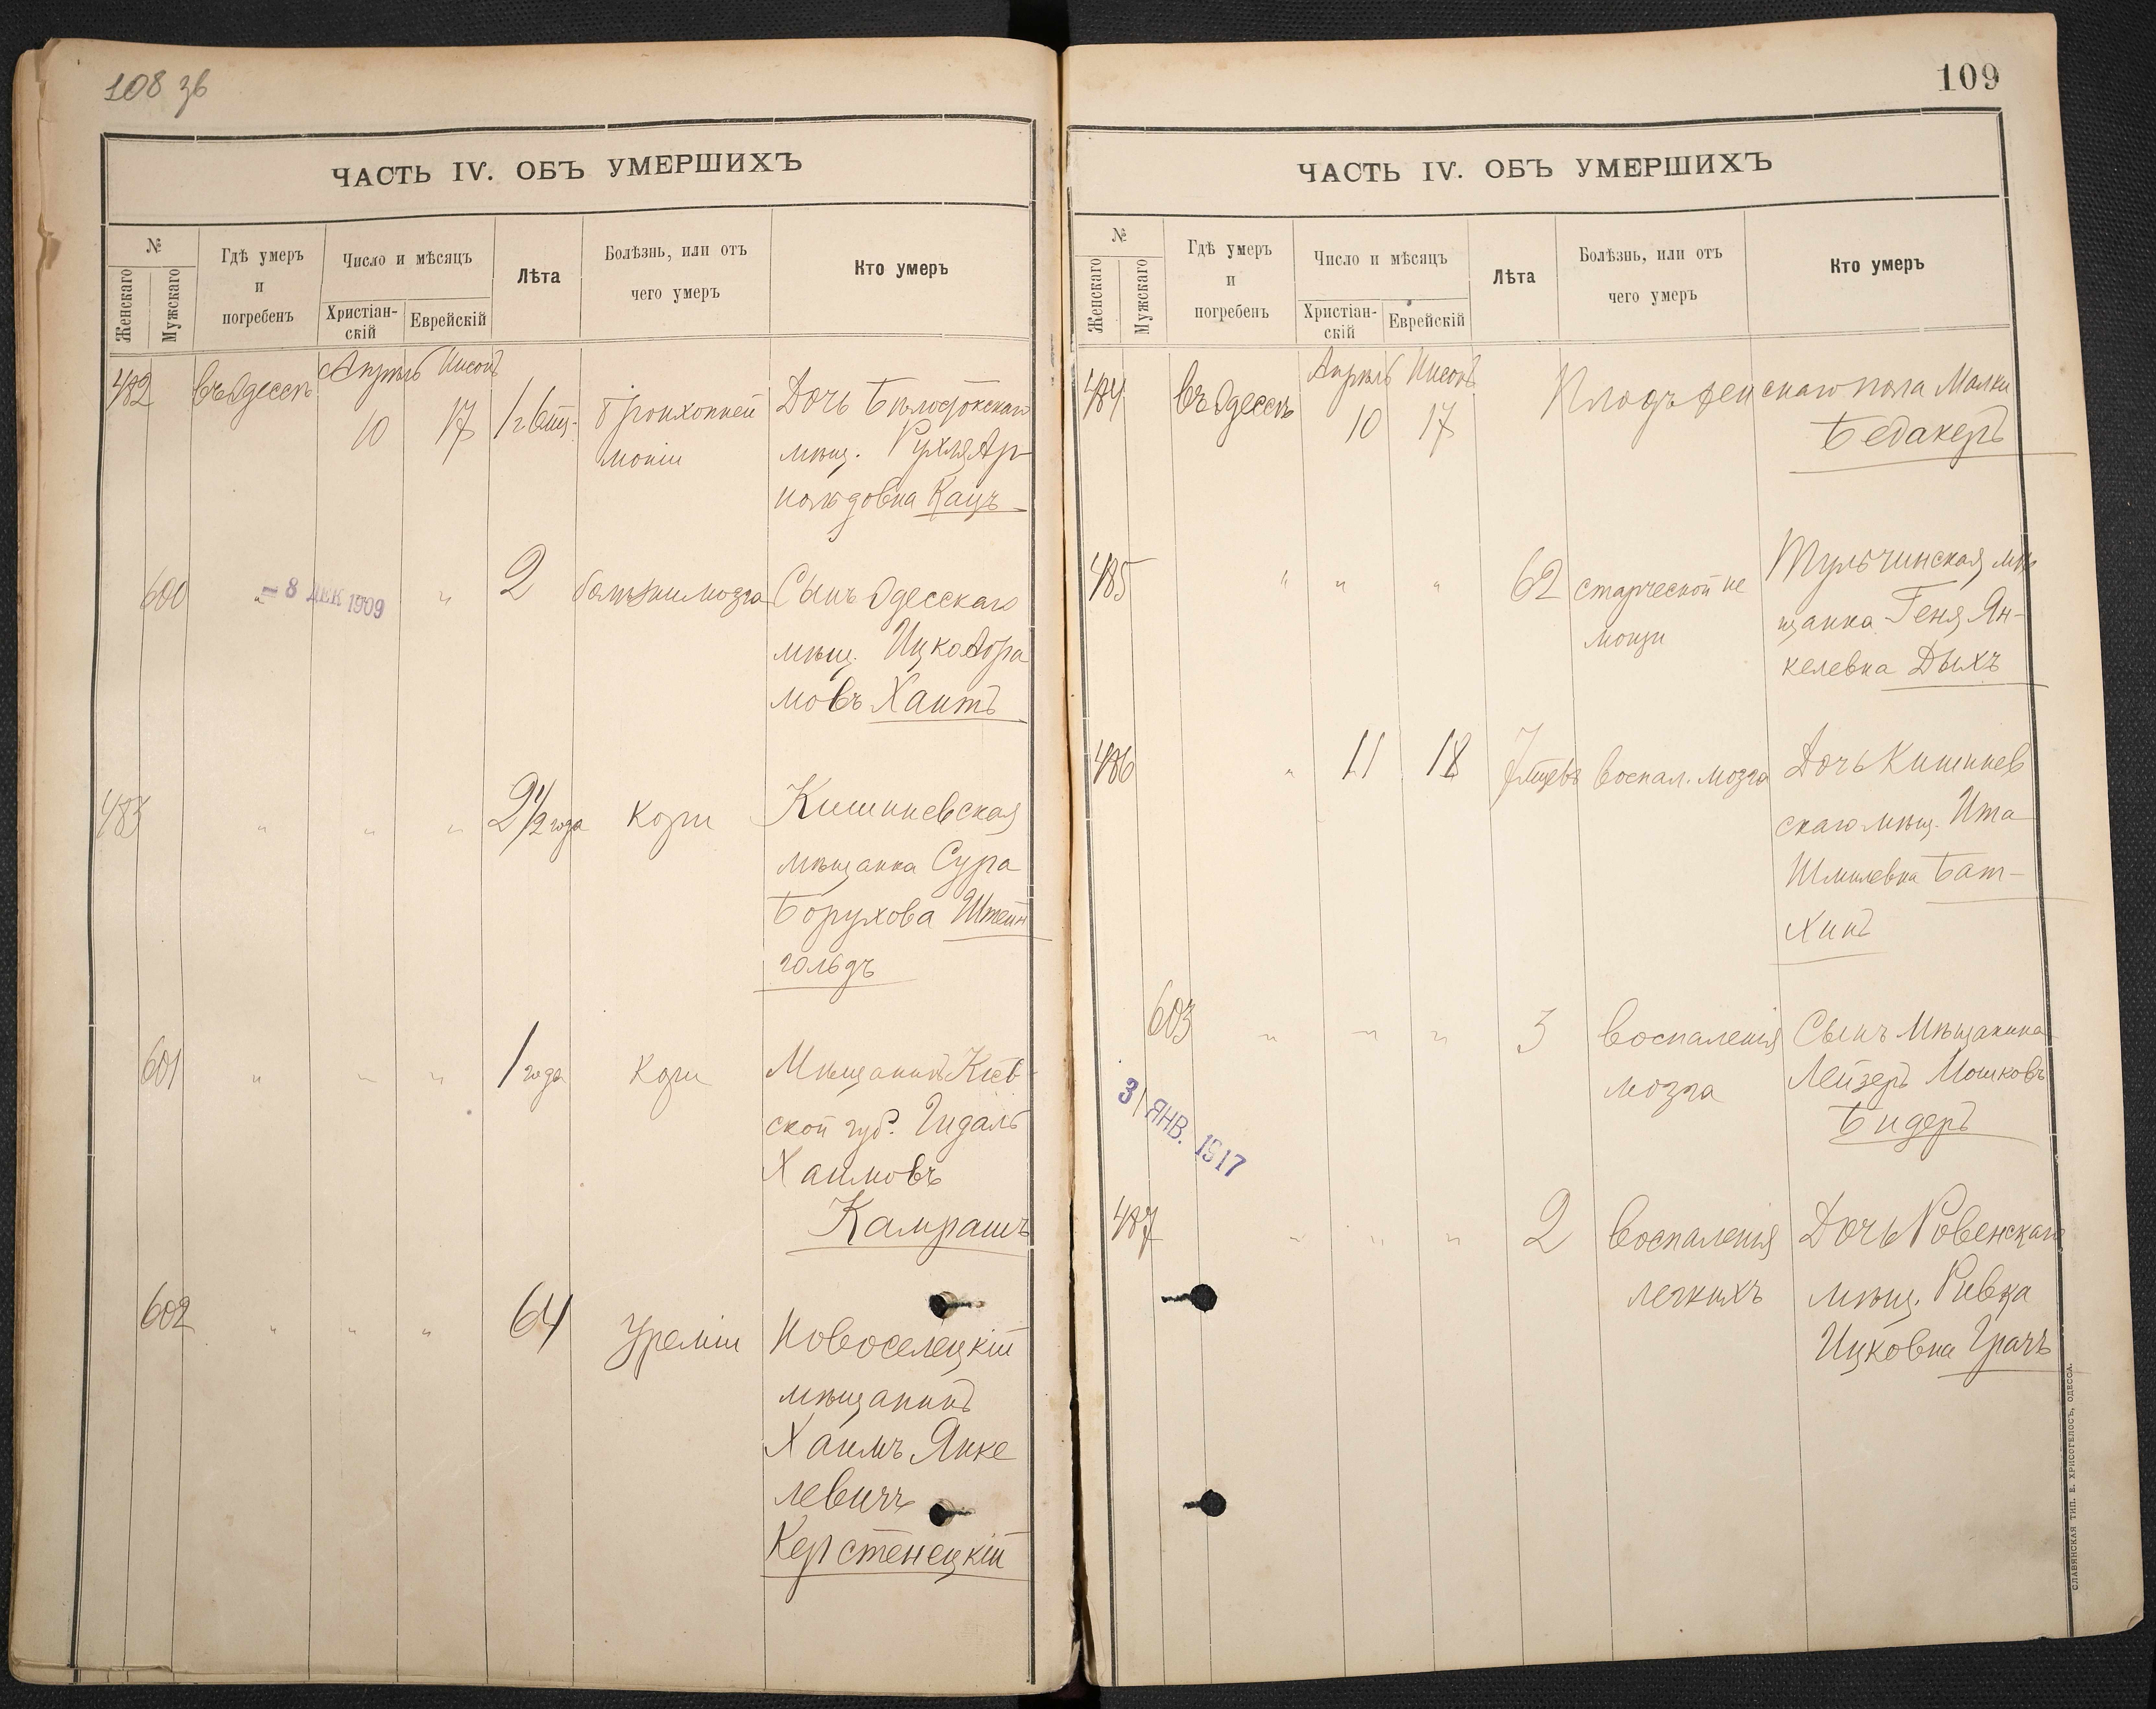 108 зв
ЧАСТЬ IV. ОБЪ УМЕРШИХЪ
№
Женскаго
Мужскаго
Гдѣ умеръ
и
погребенъ
Число и мѣсяцъ
Христіан-
скій
Еврейскій
Лѣта
Болѣзнь, или отъ
чего умеръ
Кто умеръ
482 въ Одессѣ Апрѣль Нисонъ
10 17 Бронхопней
моніи
Дочь Бѣлостокскаго
мѣщ. Рухля Ар-
нольдовна Кацъ
600 " " 2 мозга Сынъ Одесскаго
– 8 ДЕК 1909
мѣщ. Ицко Абра
мовъ Хаитъ
483 " " " 2 1/2 года Кори Кишиневская
мѣщанка Сура
Борухова Штейн
гольдъ
601 " " " 1 года Кори Мѣщанинъ Кіев
ской губ. Гидаль
Хаимовъ
Камрашъ
602 " " " 64 Уреміи Новоселецкій
мѣщанинъ
Хаимъ Янке
левичъ
Керстенецкій
109
ЧАСТЬ IV. ОБЪ УМЕРШИХЪ
№
Женскаго
Мужскаго
Гдѣ умеръ
и
погребенъ
Число и мѣсяцъ
Христіан-
скій
Еврейскій
Лѣта
Болѣзнь, или отъ
чего умеръ
Кто умеръ
484 въ Одессѣ Апрѣль Нисонъ
10 17 Плодъ женскаго пола Малки
Бедакеръ
485 " " " 62 старческой не
мощи
Тульчинская мѣ
щанка Геня Ян-
келевна Дыхъ
486 " 11 18 воспал. мозга Дочь Кишинев
скаго мѣщ. Ита
Шмилевна Бат-
хинъ
603 " " " 3 воспаленія
мозга
Сынъ Мѣщанина
Лейзеръ Мошковъ
Бидеръ
31 ЯНВ. 1917
487 " " " 2 воспаленія
легкихъ
Дочь Ровенскаго
мѣщ. Ривка
Ицковна Грачъ
СЛАВЯНСКАЯ ТИП. Е. ХРИСОГЕЛОСЪ, ОДЕССА.